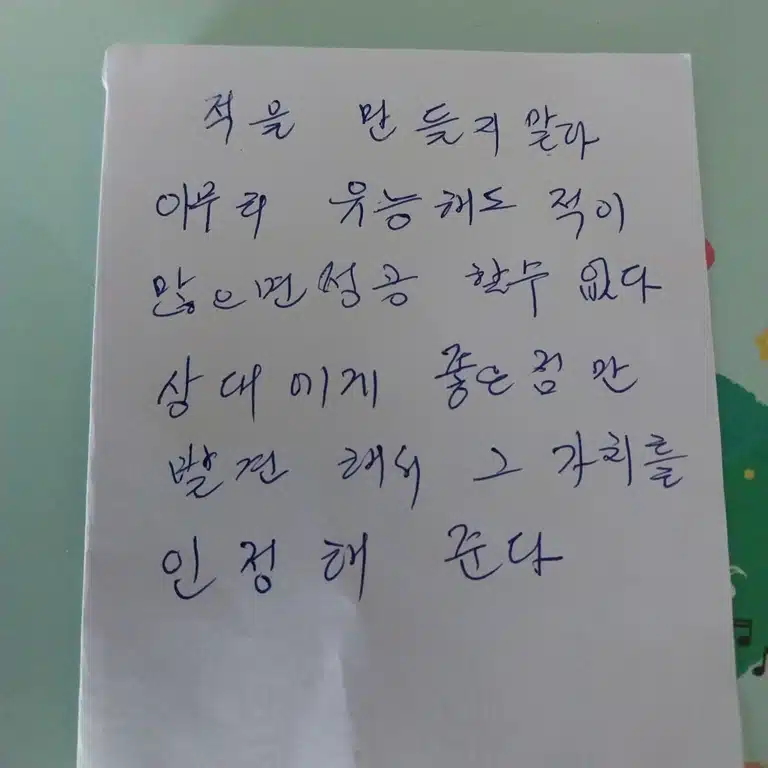 적을 만들지 말다
아무리 유능해도 적이
많으면 성공 할수 없다
상대에게 좋은점만
발견 해서 그 가치를
인정해 준다